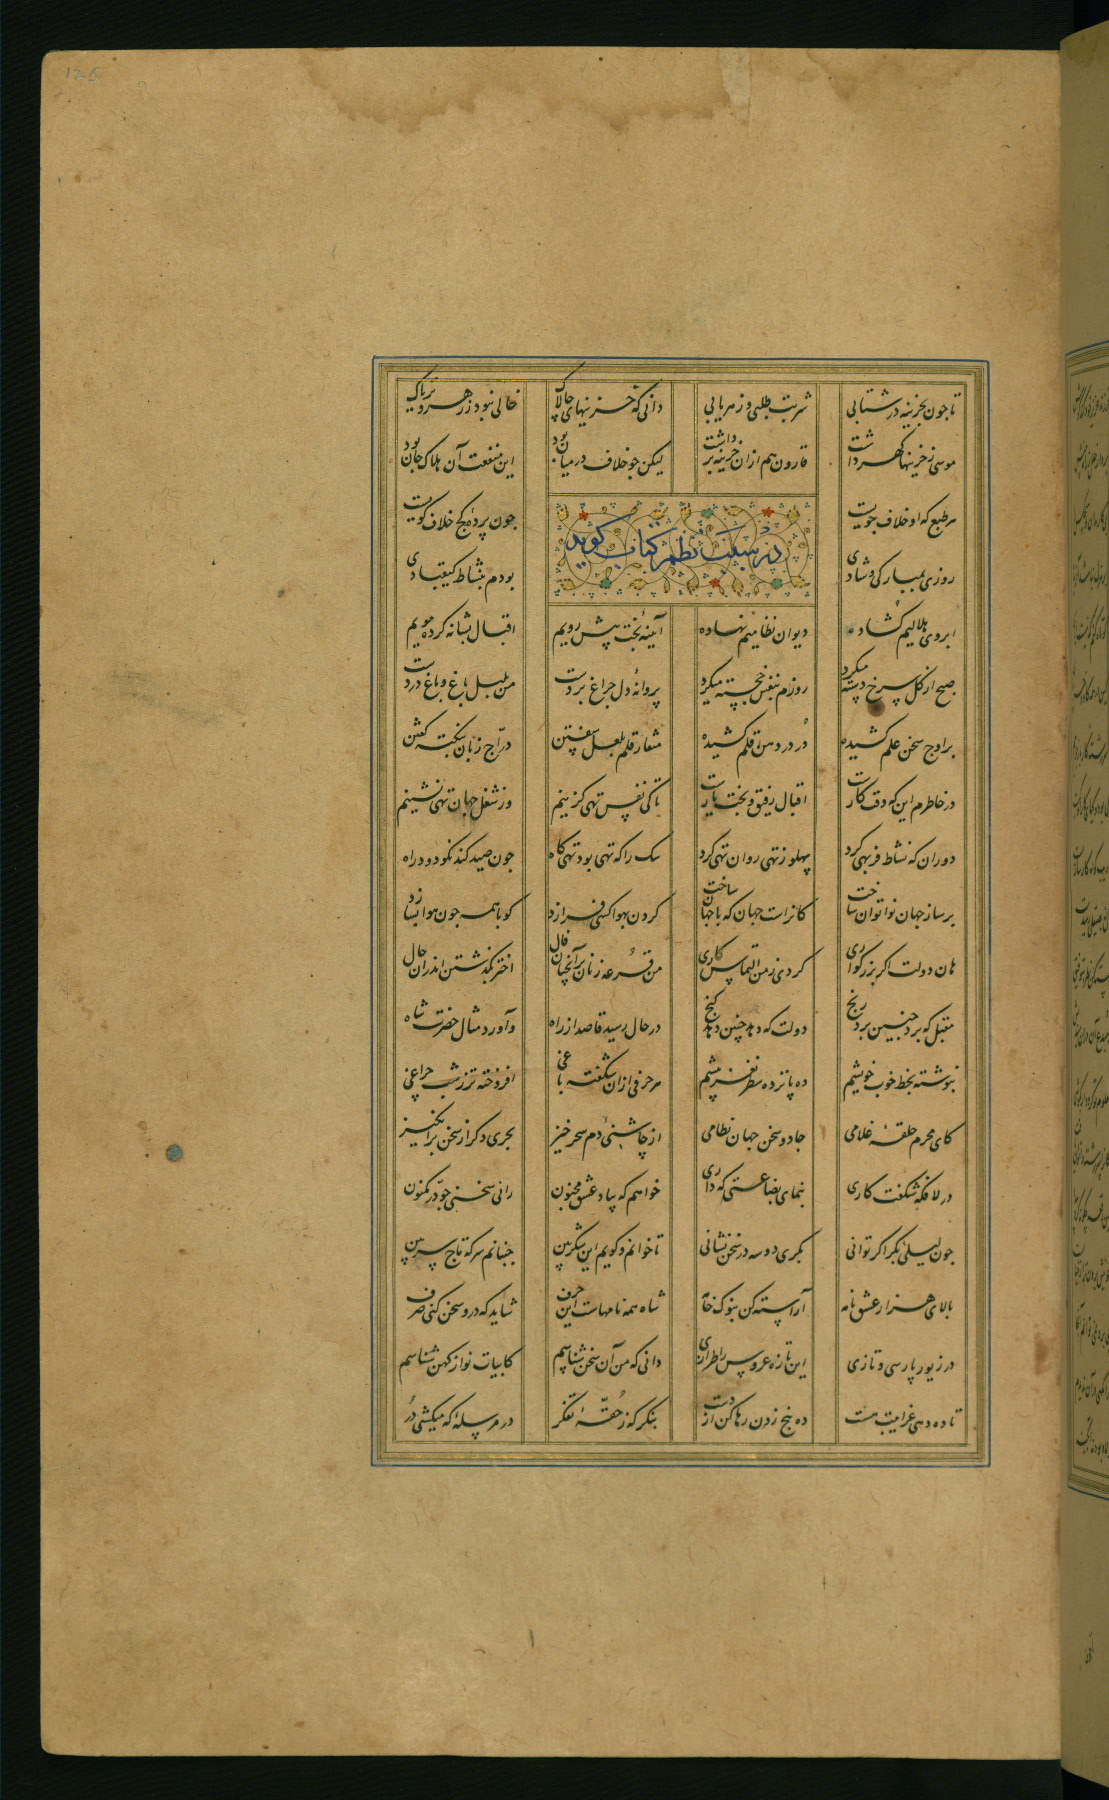 125
تا چون بخزینه در شتابی شربت طلبی و زهر یابی دانی که خزینهای چالاک خالی نبود ز زهر و تریاک
موسی ز خزینها گهر داشت قارون هم ازان خزینه بر داشت لیکن چو خلاف در میان بود این منفعت آن هلاک جان بود
هر طبع که او خلاف جویست چون پرده کج خلاف گویست
در سبب نظم کتاب گوید
روزی بمبارکی و شادی بودم بنشاط کیقبادی
ابروی هلالیم گشاده دیوان نظامیم نهاده آیینهٔ بخت پیش رویم اقبال بشانه کرده مویم
صبح از گل سرخ دسته میکرد روزم بنفس خجسته میکرد پروانهٔ دل چراغ بر دست من بلبل باغ و باغ در دست
بر اوج سخن علم کشیده در درج من قلم کشیده منقار قلم بلعل سفتن دراج زبان بنکته گفتن
در خاطرم این که وقت کارست اقبال رفیق و بخت یارست تا کی نفس تهی گزینم وز شغل جهان تهی نشینم
دوران که نشاط فربهی کرد پهلو ز تهی روان تهی کرد سگ را که تهی بود تهی گاه چون صید کند نگو دود راه
بر ساز جهان نوا توان ساخت کانراست جهان که با جهان ساخت گردن بهوا کسی فرازد کو با همه چون هوا بسازد
هان دولت اگر بزرگواری کردی ز من التماس کاری من قرعه زنان بر آنچنان فال اختر بگذشتن اندران حال
مقبل که برد چنین برد رنج دولت که دهد چنین دهد گنج در حال رسید قاصد از راه وآورد مثال حضرت شاه
بنوشته بخط خوب خویشم ده پانزده سطر نغز بیشم هر حرفی ازان شکفته باغی افروخته تر ز شب چراغی
کای محرم حلقهٔ غلامی جادو سخن جهان نظامی از چاشنی دم سحر خیز بحری دگر از سخن برانگیز
در لافگه شگفت کاری بنمای بضاعتی که داری خواهم که بیاد عشق مجنون رانی سخنی چو در مکنون
چون لیلی بکر اگر توانی بکری دو سه در سخن نشانی تا خوانم و گویم این شکر بین جنبانم سر که تاج سر بین
بالای هزار عشق نامه آراسته کن بنوک خامه شاه همه نامهاست این حرف شاید که درو سخن کنی صرف
در زیور پارسی و تازی این تازه عروس را طرازی دانی که من آن سخن شناسم کابیات نو از کهن شناسم
تا ده دهی غرایبت هست ده پنج زدن رها کن از دست بنگر که ز حقهٔ تفکر در مرسلهٔ که میکشی در